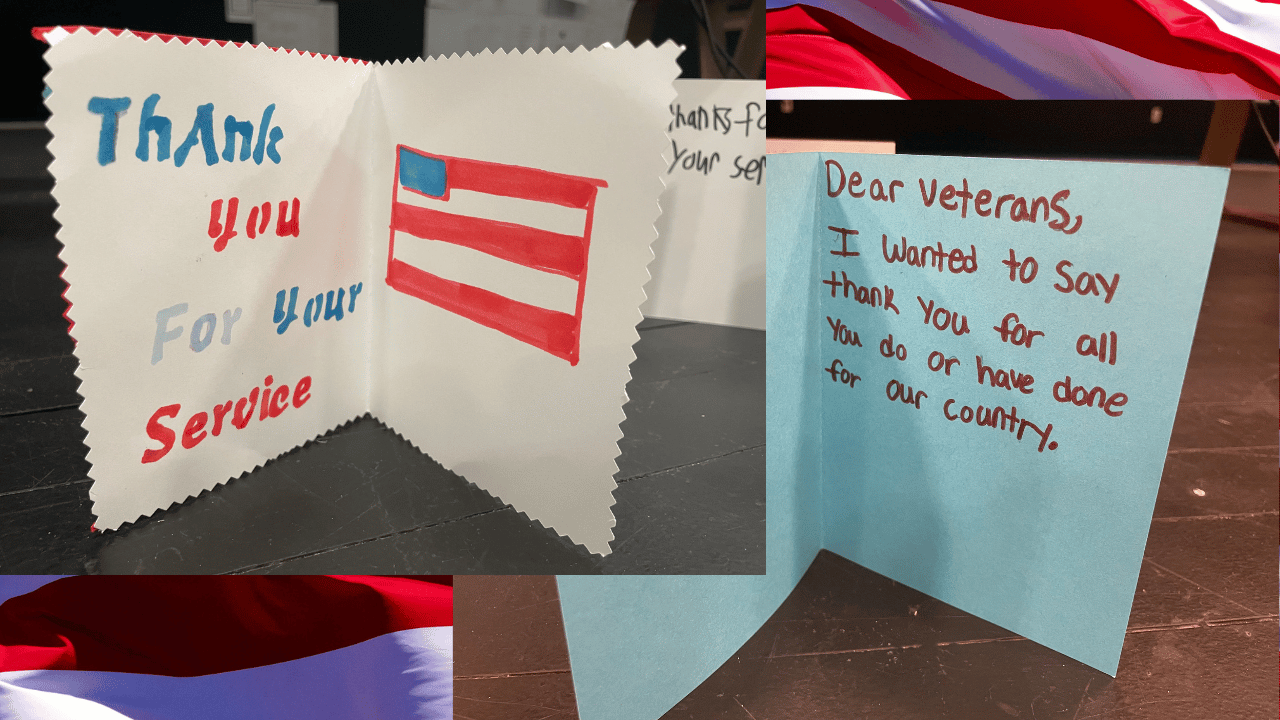 Thank
you
For your
Service
hanks fo
your ser
Dear Veterans,
I wanted to say
thank you for all
you do or have done
for our country.